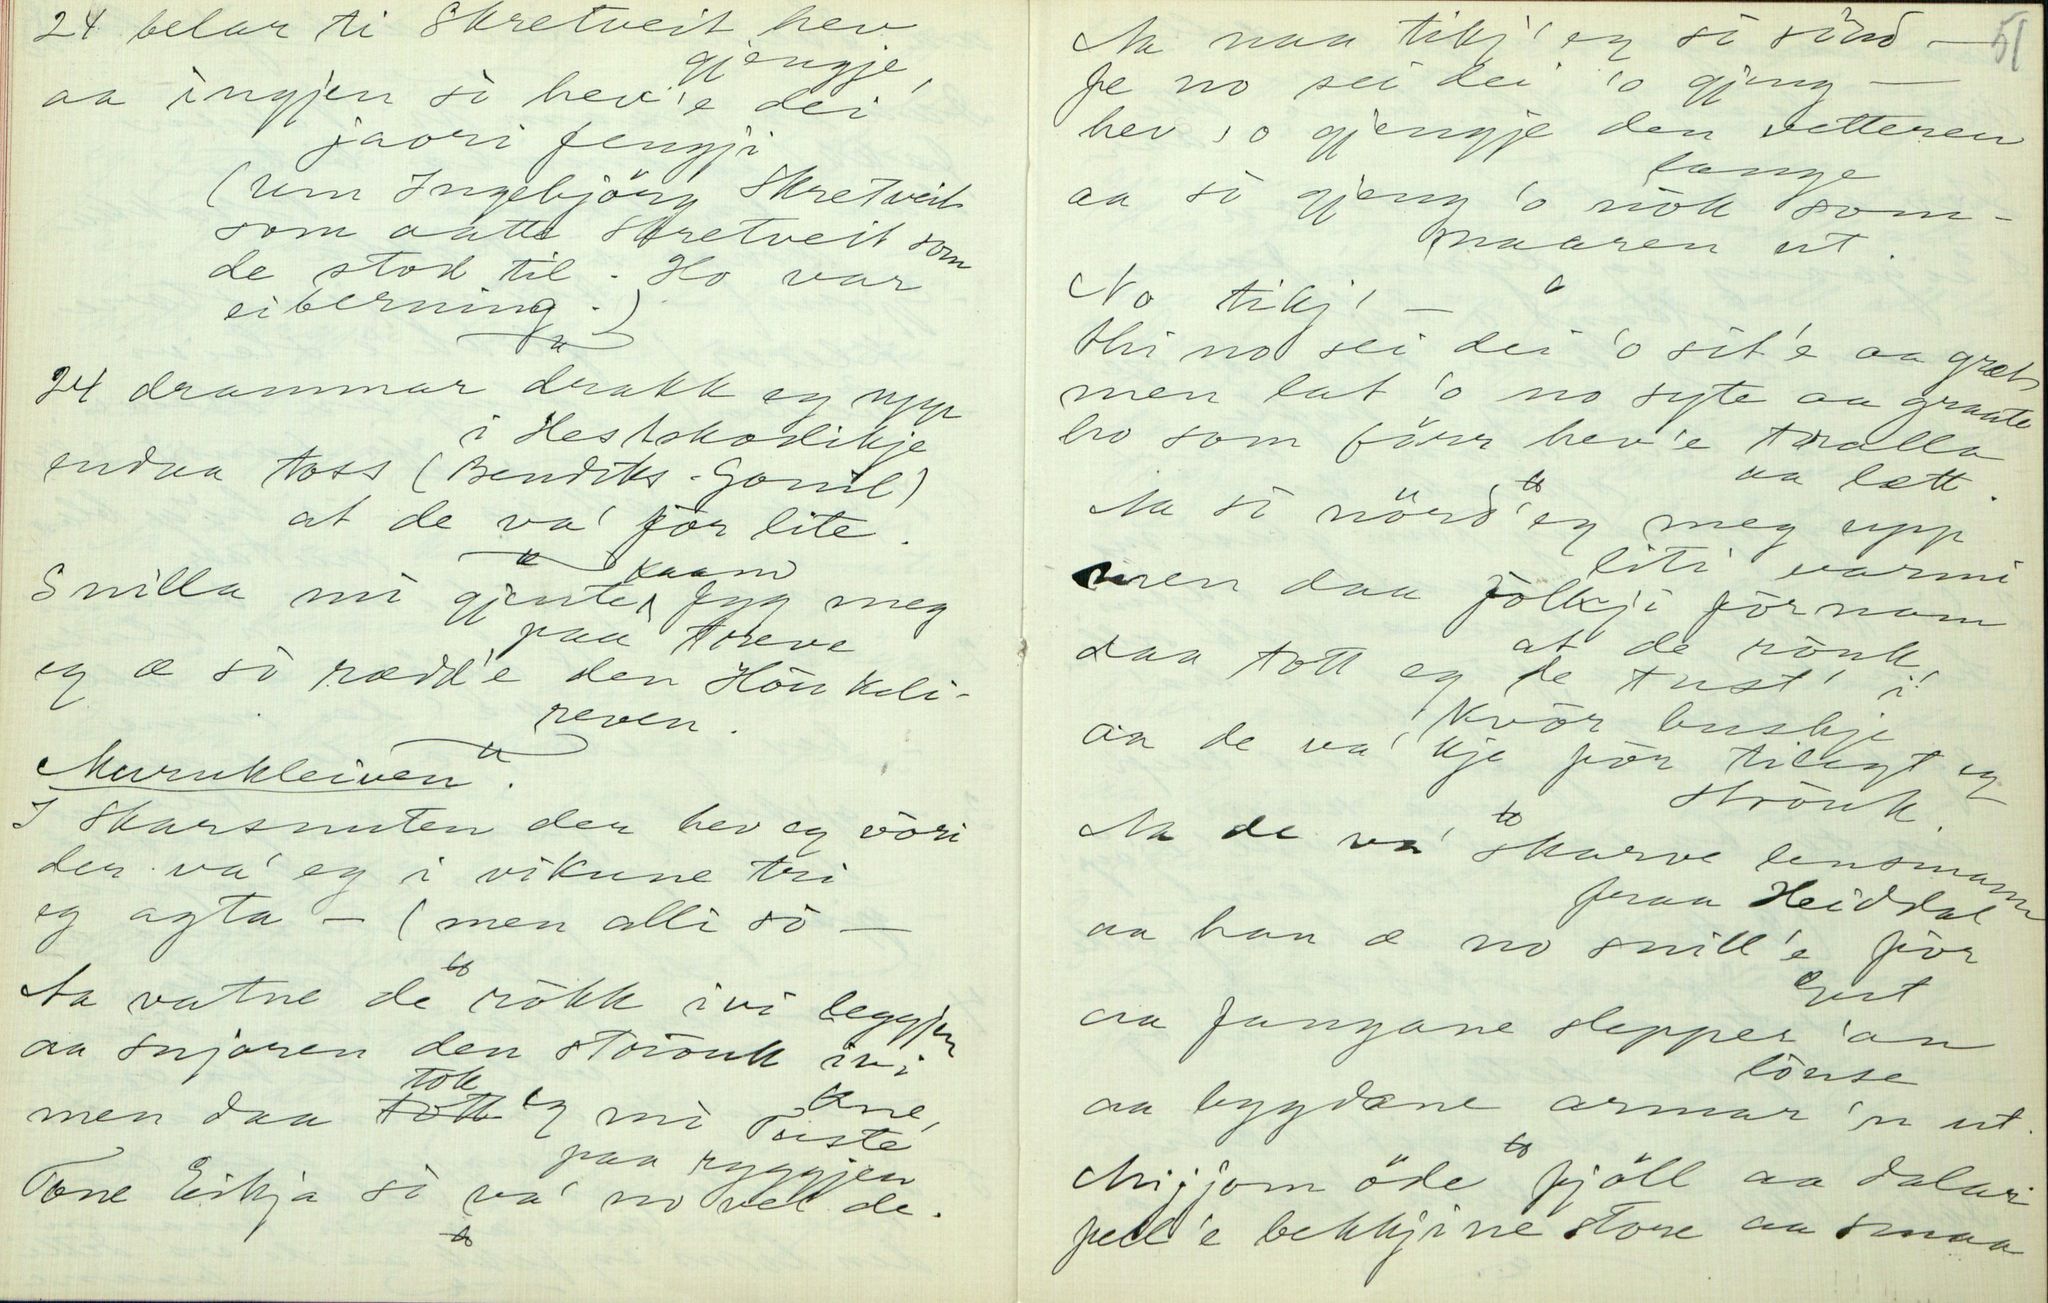 24 belar ti Skretveit hev
gjengje,
aa ingjen si hev'e dei
jaori fengji
(um Ingebjörg Skretveit
som aatte Skretveit som
de stod til. Ho var
eiberning.)
24 drammar drakk eg upp
i Hestskodikje
endaa toss (Bendiks-Gonil)
at de va' för lite.
Snilla mi gjente, kaam fyg meg
paa treve
eg æ so rædd'e den Hönkeli-
reven.
Murukleiven.
I Skarsnuten der hev eg vöri
der va' eg i vikune tri
eg agta – (men alli so –
Aa vatne de rökk ivi leggjen
aa snjoren den strönk ivi
kne,
men daa tok eg mi Tuste
paa ryggjen
Tone Eikja so va' no vel de.
51
Aa naa tikj' eg so sönd –
Fe no sei dei 'o gjeng –
hev 'o gjengje den vetteren
lange
aa so gjeng 'o nok som-
maaren ut.
No tikj' –
thi no sei dei 'o sit'e aa græt
men lat 'o no syte aa graate
ho som förr hev'e tralla
aa lætt.
Aa so nörd' eg meg upp
liti varmi
men daa folkji förnam
at de rönk,
daa tott eg de tust' i
kvör buskje
aa de va' kje för tilegt eg
strönk.
Aa de va' skarve lensmann
fraa Heiddal
aa han æ no snill'e för
Gust
aa fangane slepper 'an
lönse
aa bygdæne armar 'n ut.
Migjom öde fjöll aa dalar
fell'e bekkjine store aa smaa